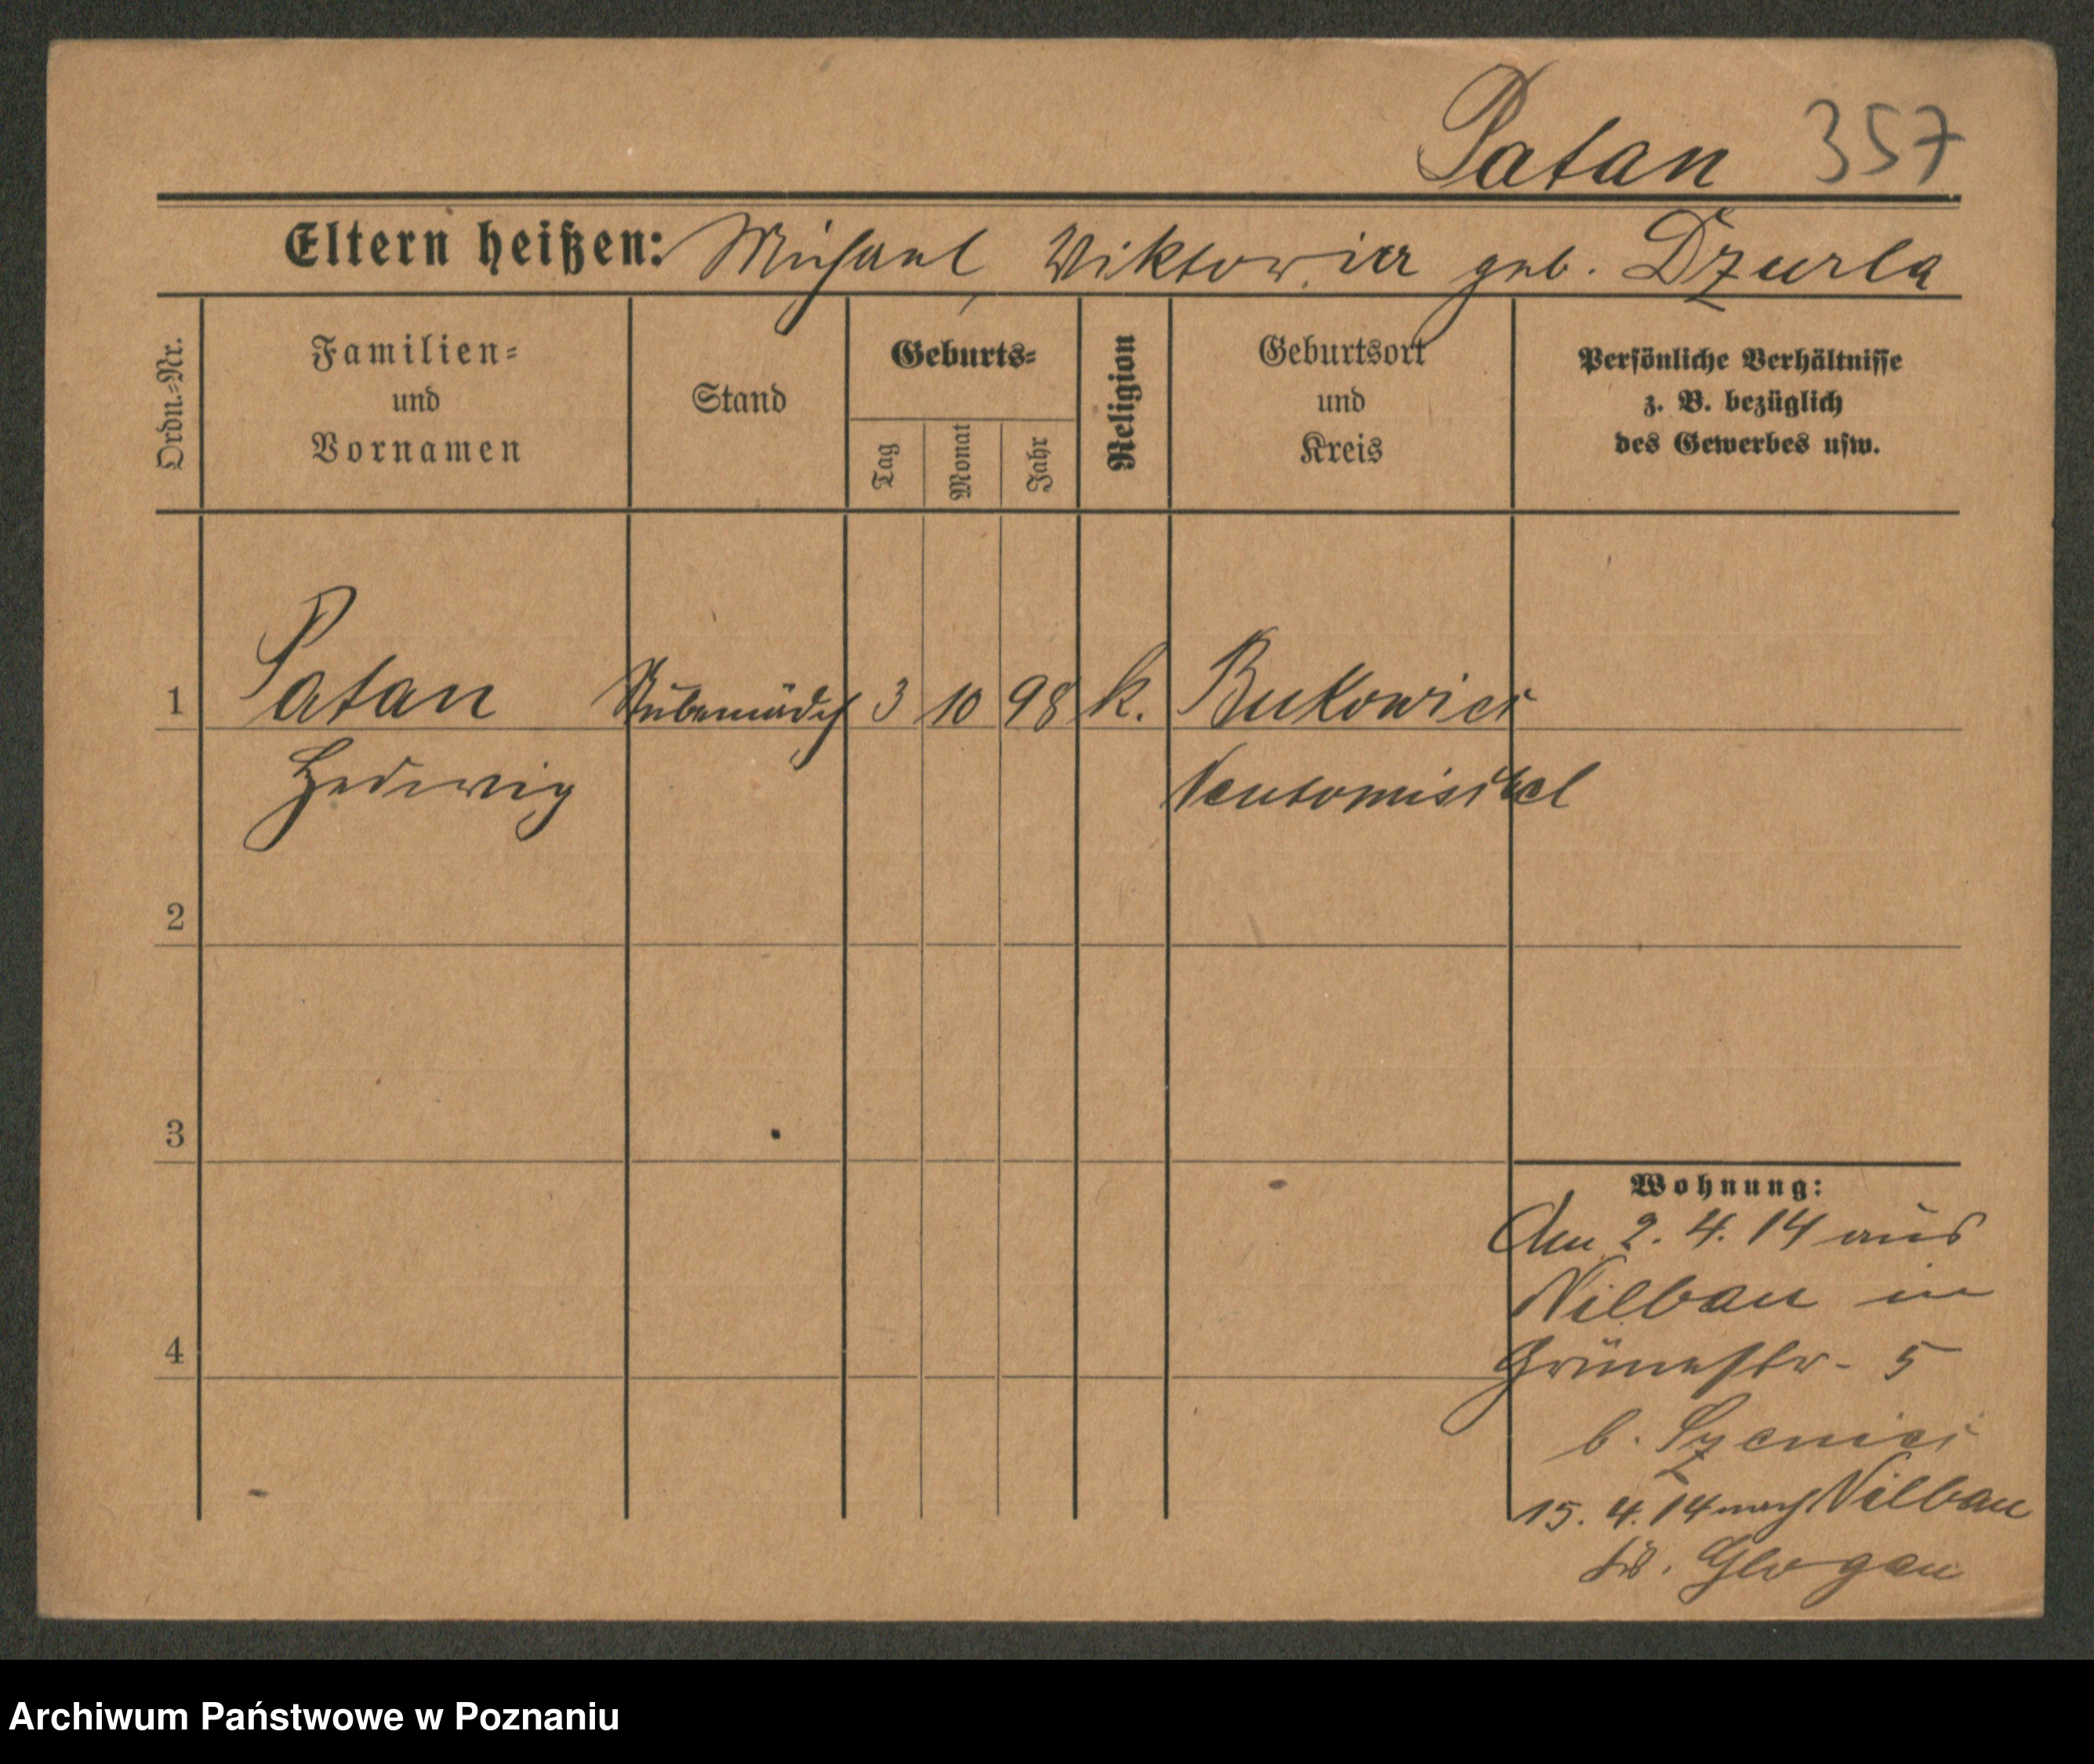 Patan 357
Eltern heißen: Michael, Viktoria geb. Dzurla
Ordn.-Nr.
Familien-
und
Vornamen
Stand
Geburts-
Tag
Monat
Jahr
Religion
Geburtsort
und
Kreis
Persönliche Verhältnisse
z. B. bezüglich
des Gewerbes usw.
1 Patan Stubenmädch 3 10 98 k. Bukowiec
Hedwig Neutomischel
2
3
4
Wohnung:
Am 2. 4. 14 aus
Nilbau in
Grünestr. 5
b.
15. 4. 14 nach Nilbau
Kr. Glogau
Archiwum Państwowe w Poznaniu